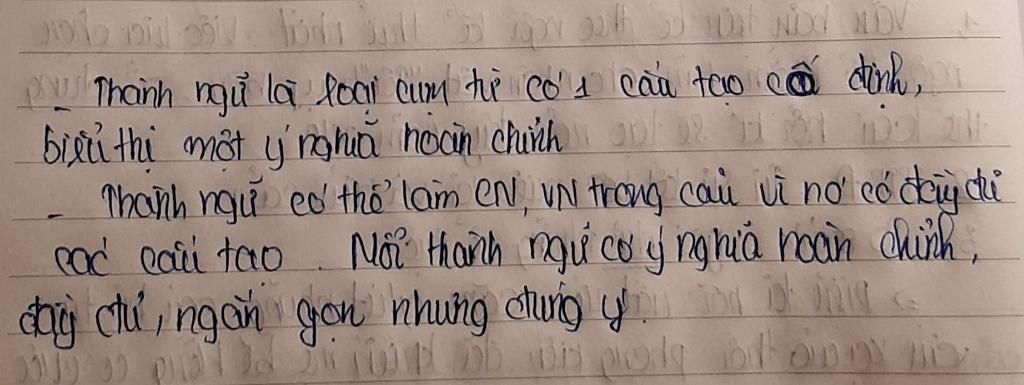 - Thành ngữ là loại cụm từ có 1 cấu tạo cố định,
biểu thị một ý nghĩa hoàn chỉnh
- Thành ngữ có thể làm CN, VN trong câu vì nó có đầy đủ
các cấu tạo. Nỗi thành ngữ có ý nghĩa hoàn chỉnh,
đầy đủ, ngắn gọn nhưng đúng ý.